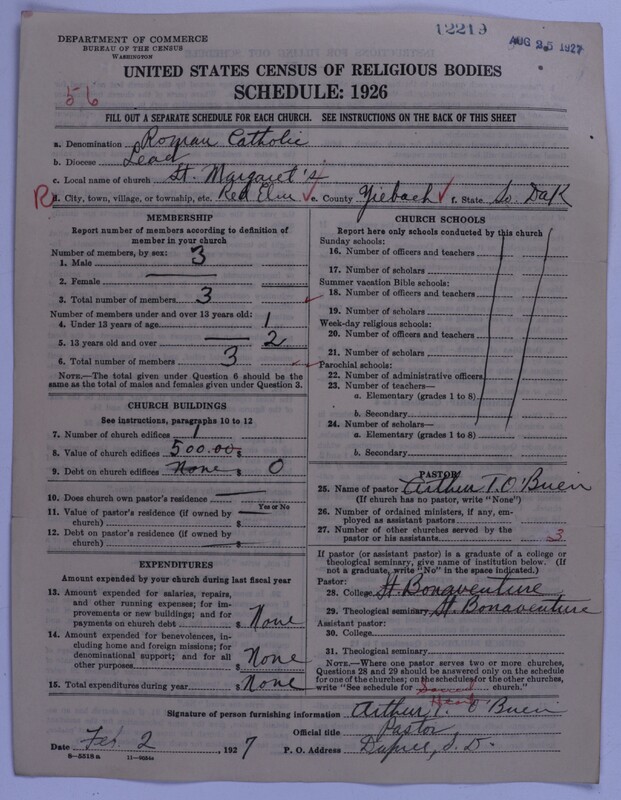 12219
AUG 25 1927
DEPARTMENT OF COMMERCE
BUREAU OF THE CENSUS
WASHINGTON
UNITED STATES CENSUS OF RELIGIOUS BODIES
SCHEDULE: 1926
56
FILL OUT A SEPARATE SCHEDULE FOR EACH CHURCH. SEE INSTRUCTIONS ON THE BACK OF THIS SHEET
a. Denomination Roman Catholic
b. Diocese Lead
c. Local name of church St. Margaret's
R d. City, town, village, or township, etc. Red Elm e. County Ziebach f. State So. Dak
MEMBERSHIP
Report number of members according to definition of
member in your church
Number of members, by sex:
1. Male 3
2. Female —
3. Total number of members 3
Number of members under and over 13 years old:
4. Under 13 years of age 1
5. 13 years old and over — 2
6. Total number of members 3
NOTE.—The total given under Question 6 should be the
same as the total of males and females given under Question 3.
CHURCH BUILDINGS
See instructions, paragraphs 10 to 12
7. Number of church edifices 1
8. Value of church edifices 500.00 $
9. Debt on church edifices None $ 0
10. Does church own pastor's residence —
Yes or No
11. Value of pastor's residence (if owned by
church) — $
12. Debt on pastor's residence (if owned by
church) — $
EXPENDITURES
Amount expended by your church during last fiscal year
13. Amount expended for salaries, repairs,
and other running expenses; for im-
provements or new buildings; and for
payments on church debt $ None
14. Amount expended for benevolences, in-
cluding home and foreign missions; for
denominational support; and for all
other purposes $ None
15. Total expenditures during year $ None
CHURCH SCHOOLS
Report here only schools conducted by this church
Sunday schools:
16. Number of officers and teachers
17. Number of scholars
Summer vacation Bible schools:
18. Number of officers and teachers
19. Number of scholars
Week-day religious schools:
20. Number of officers and teachers
21. Number of scholars
Parochial schools:
22. Number of administrative officers
23. Number of teachers—
a. Elementary (grades 1 to 8)
b. Secondary
24. Number of scholars—
a. Elementary (grades 1 to 8)
b. Secondary
PASTOR
25. Name of pastor Arthur T. O'Buein
(If church has no pastor, write "None")
26. Number of ordained ministers, if any, em-
ployed as assistant pastors
27. Number of other churches served by the
pastor or his assistants 3
If pastor (or assistant pastor) is a graduate of a college or
theological seminary, give name of institution below. (If
not a graduate, write "No" in the space indicated.)
Pastor:
28. College St. Bonaventure
29. Theological seminary St. Bonaventure
Assistant pastor:
30. College
31. Theological seminary
NOTE.—Where one pastor serves two or more churches,
Questions 28 and 29 should be answered only on the schedule
for one of the churches; on the schedules for the other churches,
write "See schedule for Sacred Heart church."
Signature of person furnishing information Arthur T. O'Buein
Official title Pastor
Date Feb 2 1927 P. O. Address Dupree, S. D.
8-5518 a 11-9034a